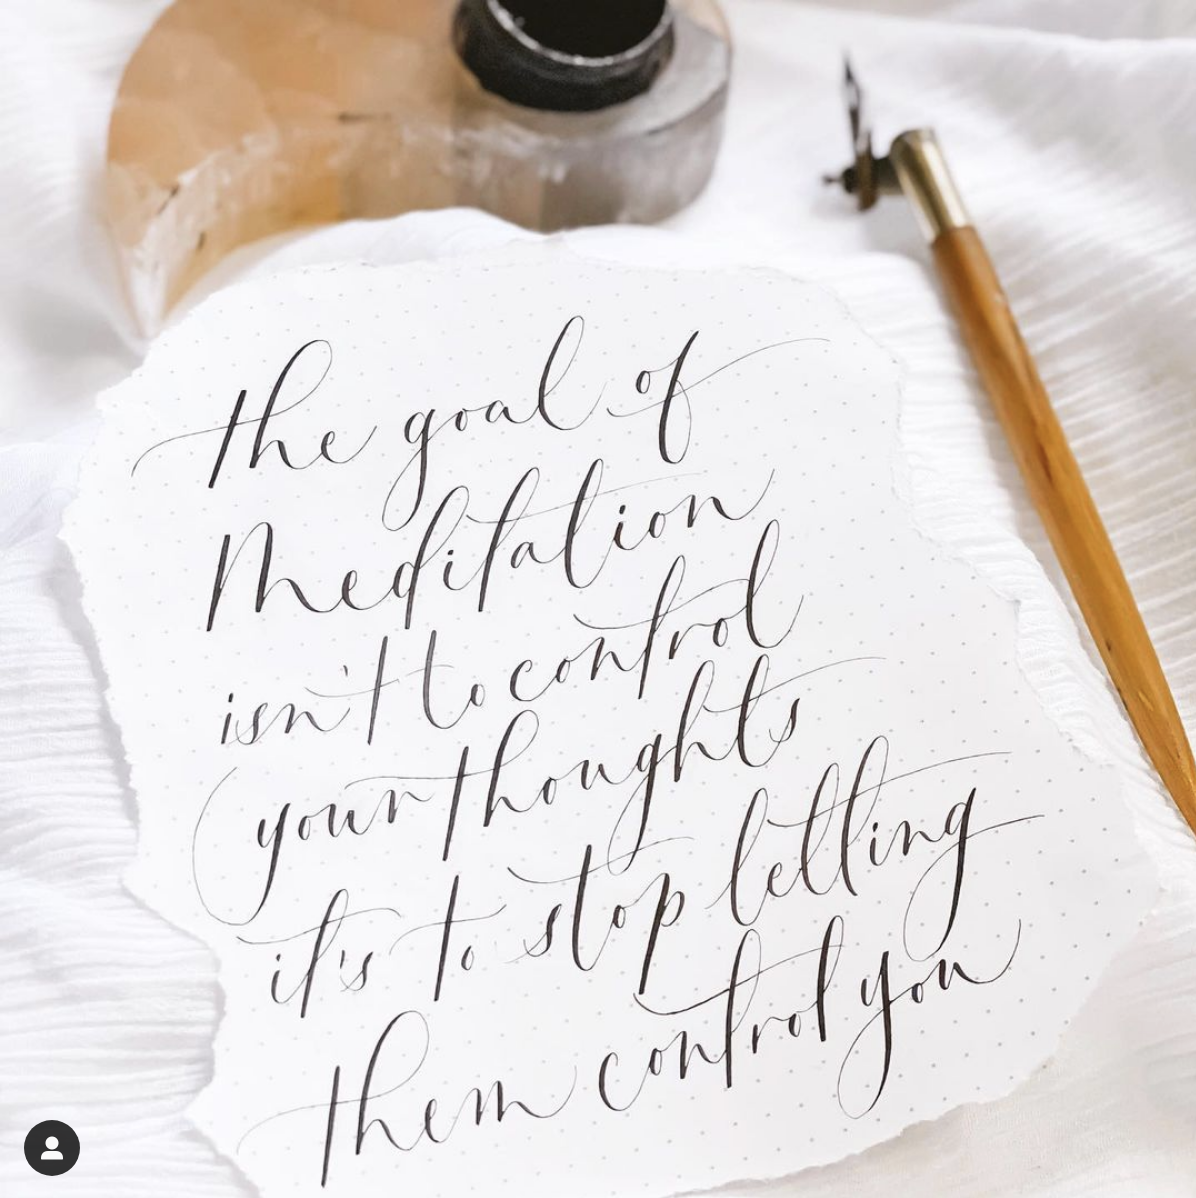 the goal of
Meditation
isn't to control
your thoughts
it's to stop letting
them control you